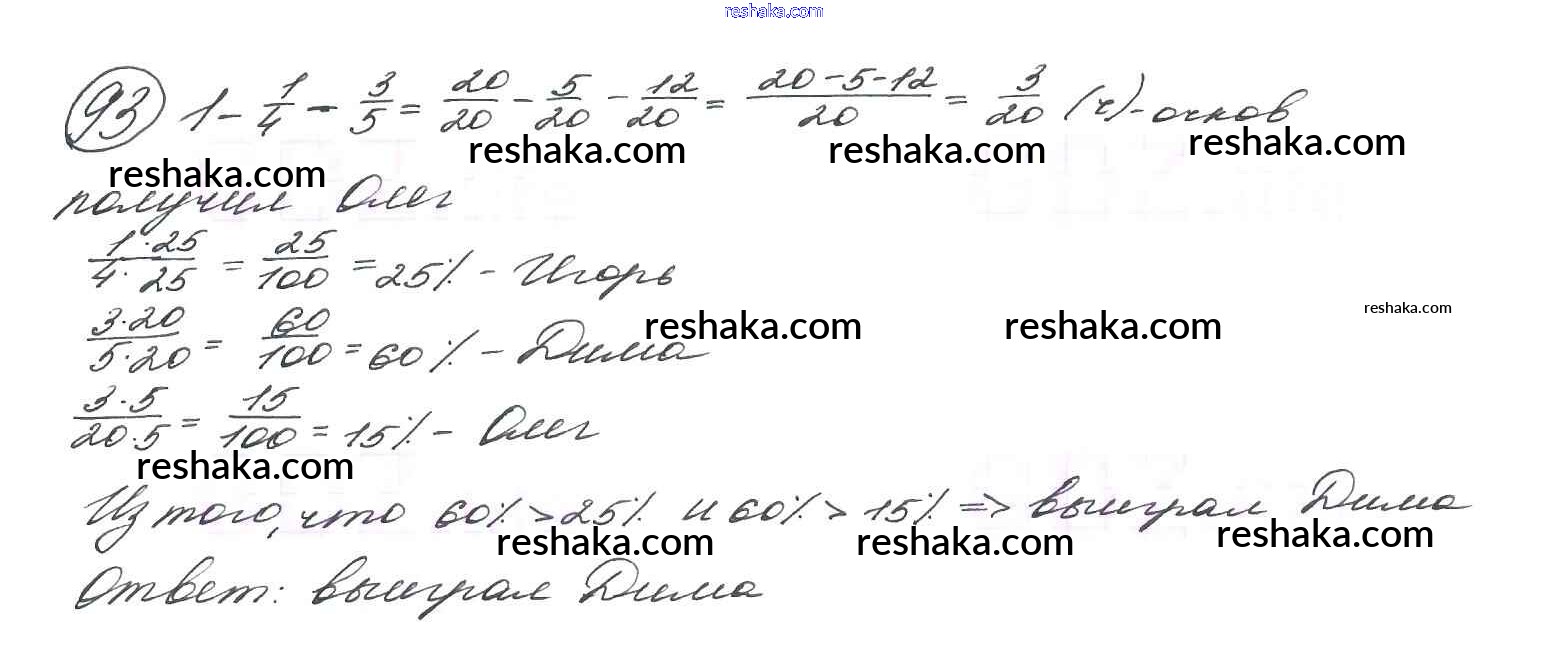 reshaka.com
93 1 - 1/4 - 3/5 = 20/20 - 5/20 - 12/20 = (20-5-12)/20 = 3/20 (ч) - очков
reshaka.com reshaka.com reshaka.com
reshaka.com
получил Олег
(1·25)/(4·25) = 25/100 = 25% - Игорь
reshaka.com
reshaka.com reshaka.com
(3·20)/(5·20) = 60/100 = 60% - Дима
(3·5)/(20·5) = 15/100 = 15% - Олег
reshaka.com
Из того, что 60% > 25% и 60% > 15% => выиграл Дима
reshaka.com reshaka.com reshaka.com
Ответ: выиграл Дима